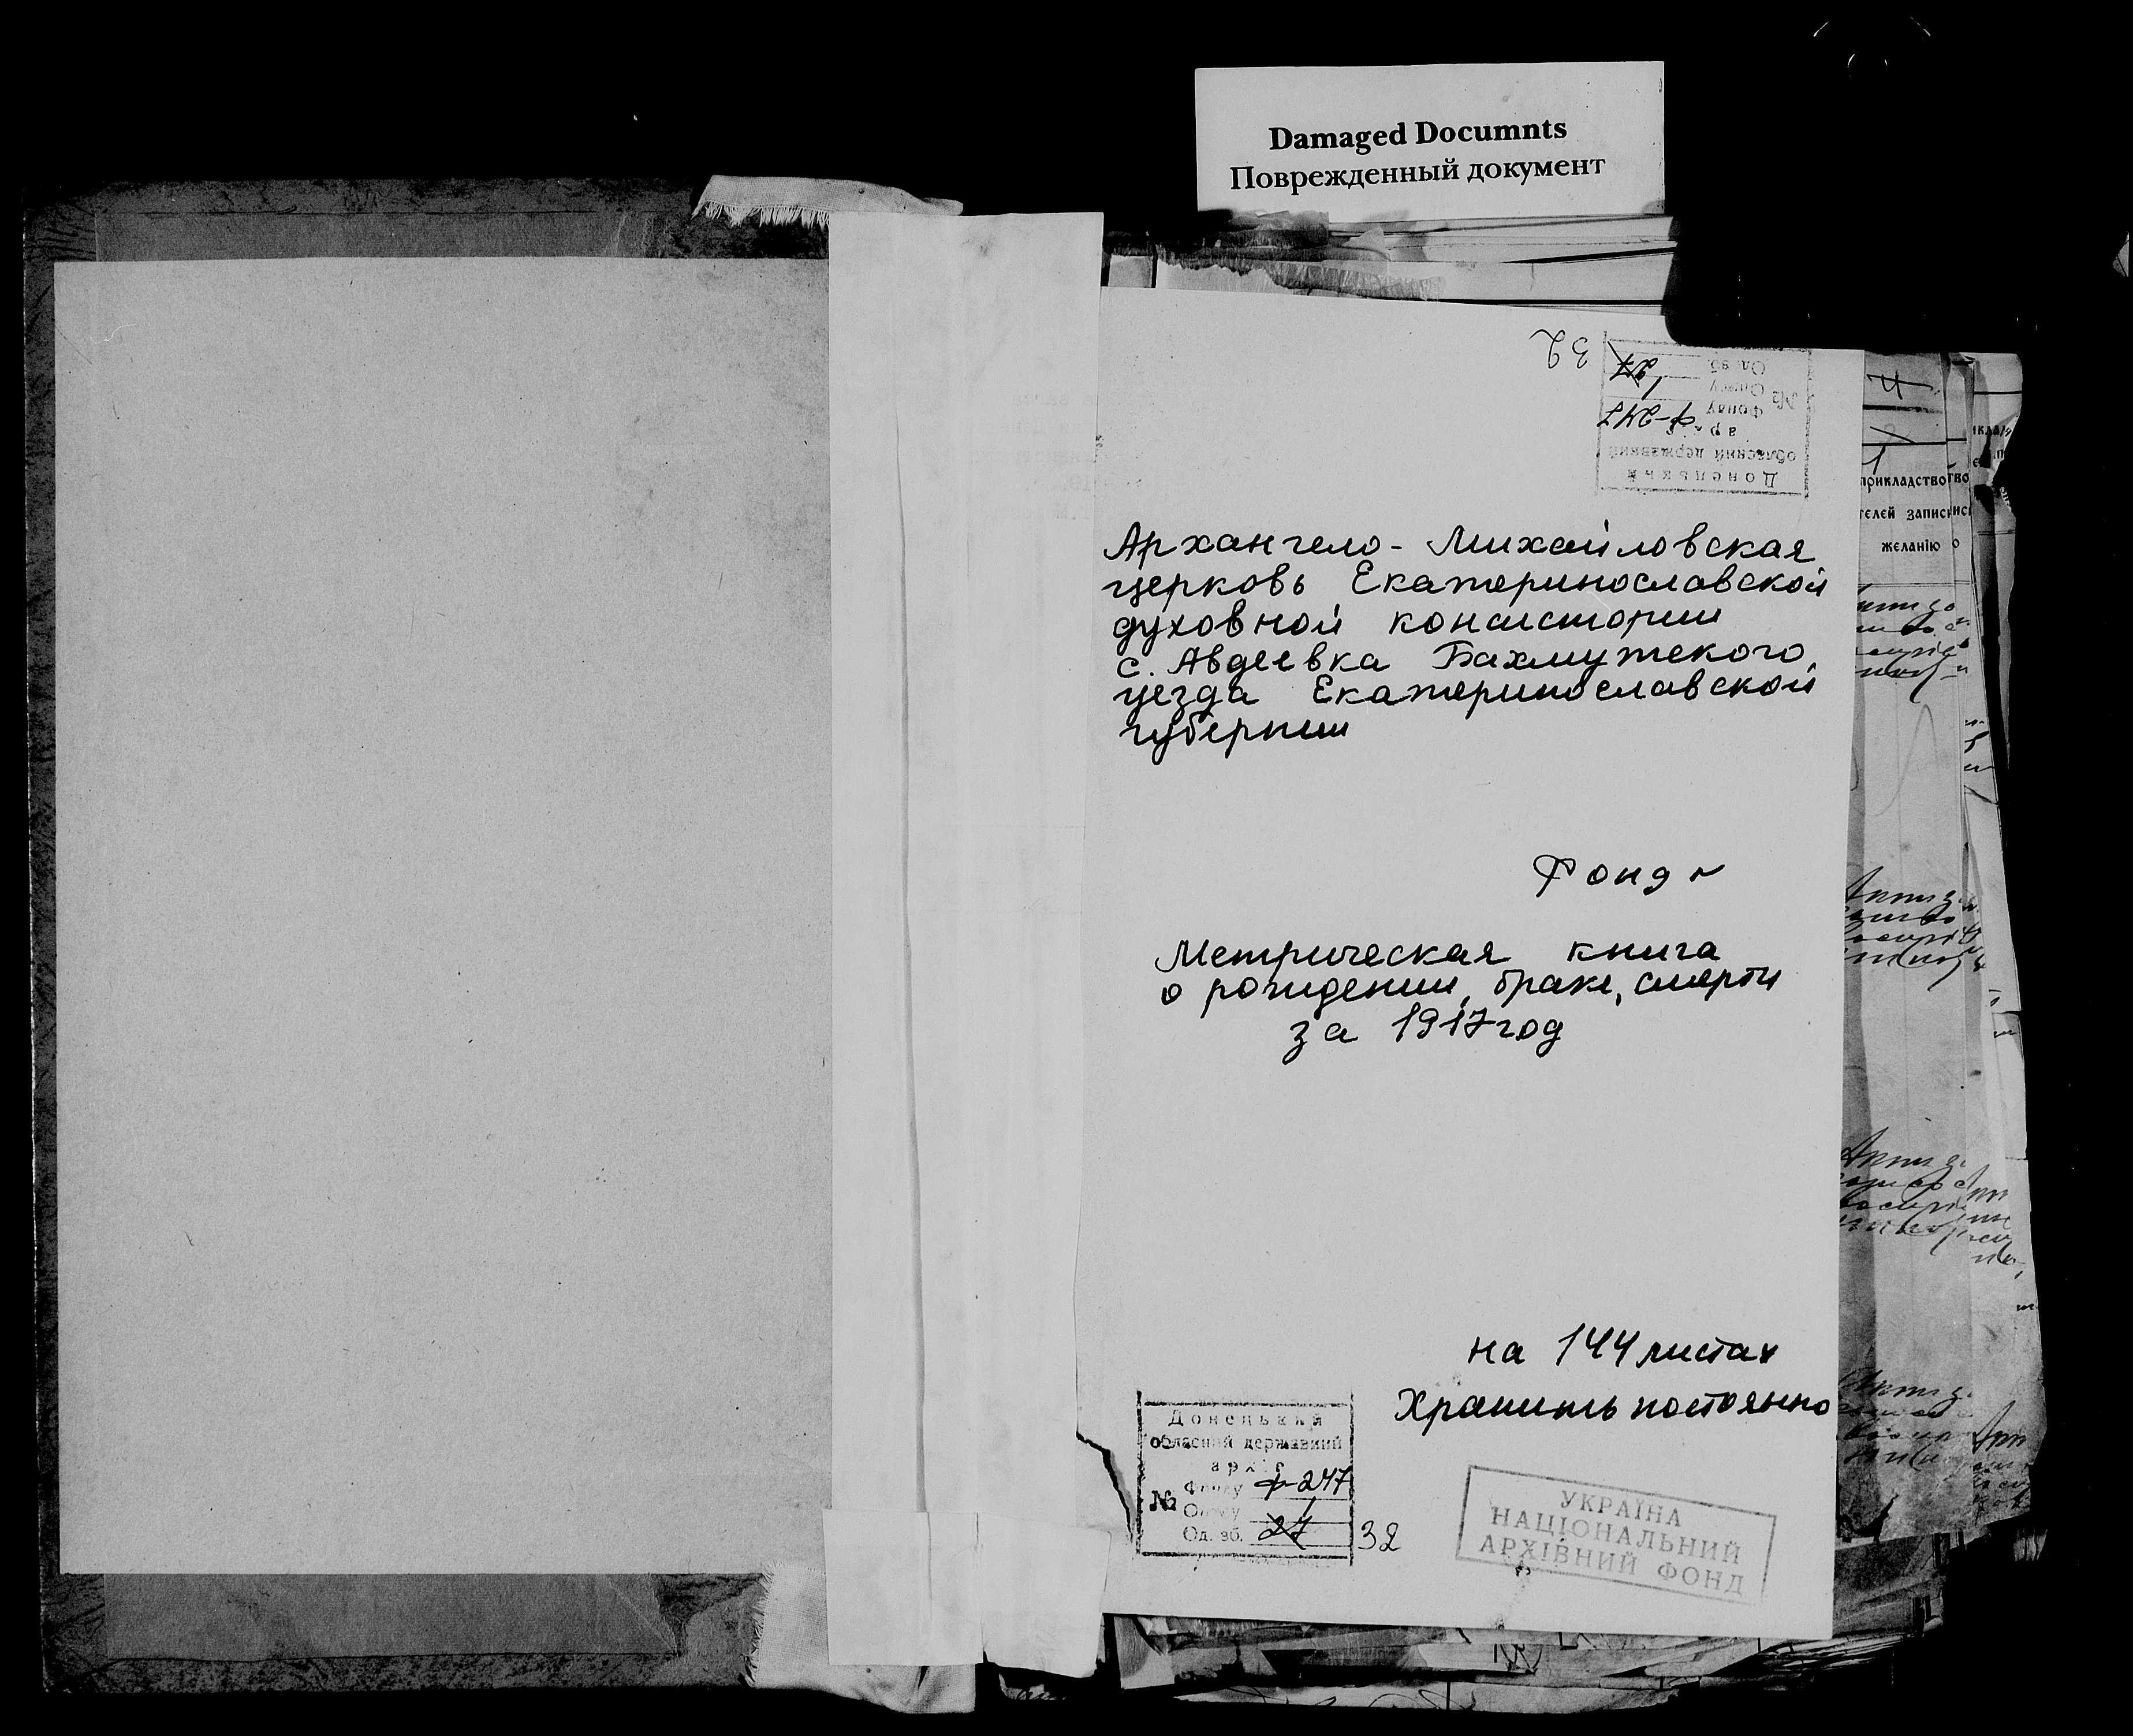 Damaged Documnts
Поврежденный документ
32
Донецький
обласний державний
архів
№ Фонду ф-247
Опису 1
Од. зб. 27
Архангело-Михайловская
церковь Екатеринославской
духовной консистории
с. Авдеевка Бахмутского
уезда Екатеринославской
губернии
Фонд
Метрическая книга
о рождении, браке, смерти
за 1917 год
на 144 листах
Хранить постоянно
Донецький
обласний державний
архів
№ Фонду ф-247
Опису 1
Од. зб. 27 32
УКРАЇНА
НАЦІОНАЛЬНИЙ
АРХІВНИЙ ФОНД
4
1
желанію